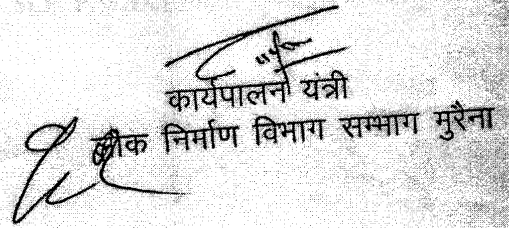 कार्यपालन यंत्री
लोक निर्माण विभाग सम्भाग मुरैना